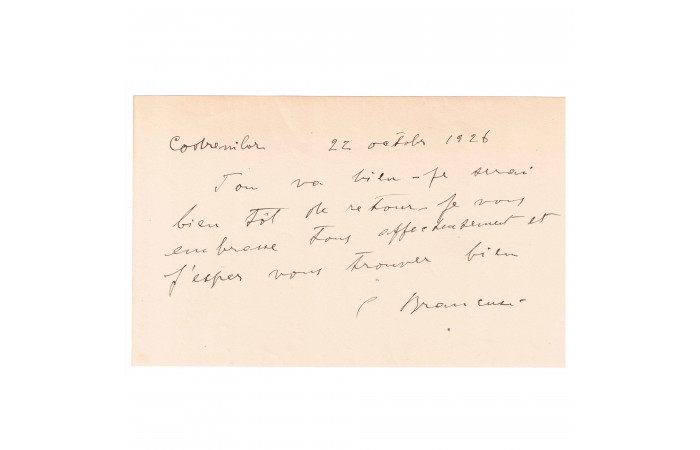 22 octobr 1926
Tou va bien - Je serai
bien tôt de retour - Je vous
embrasse tous affectuesement et
j'esper vous trouver bien
C Brancusi